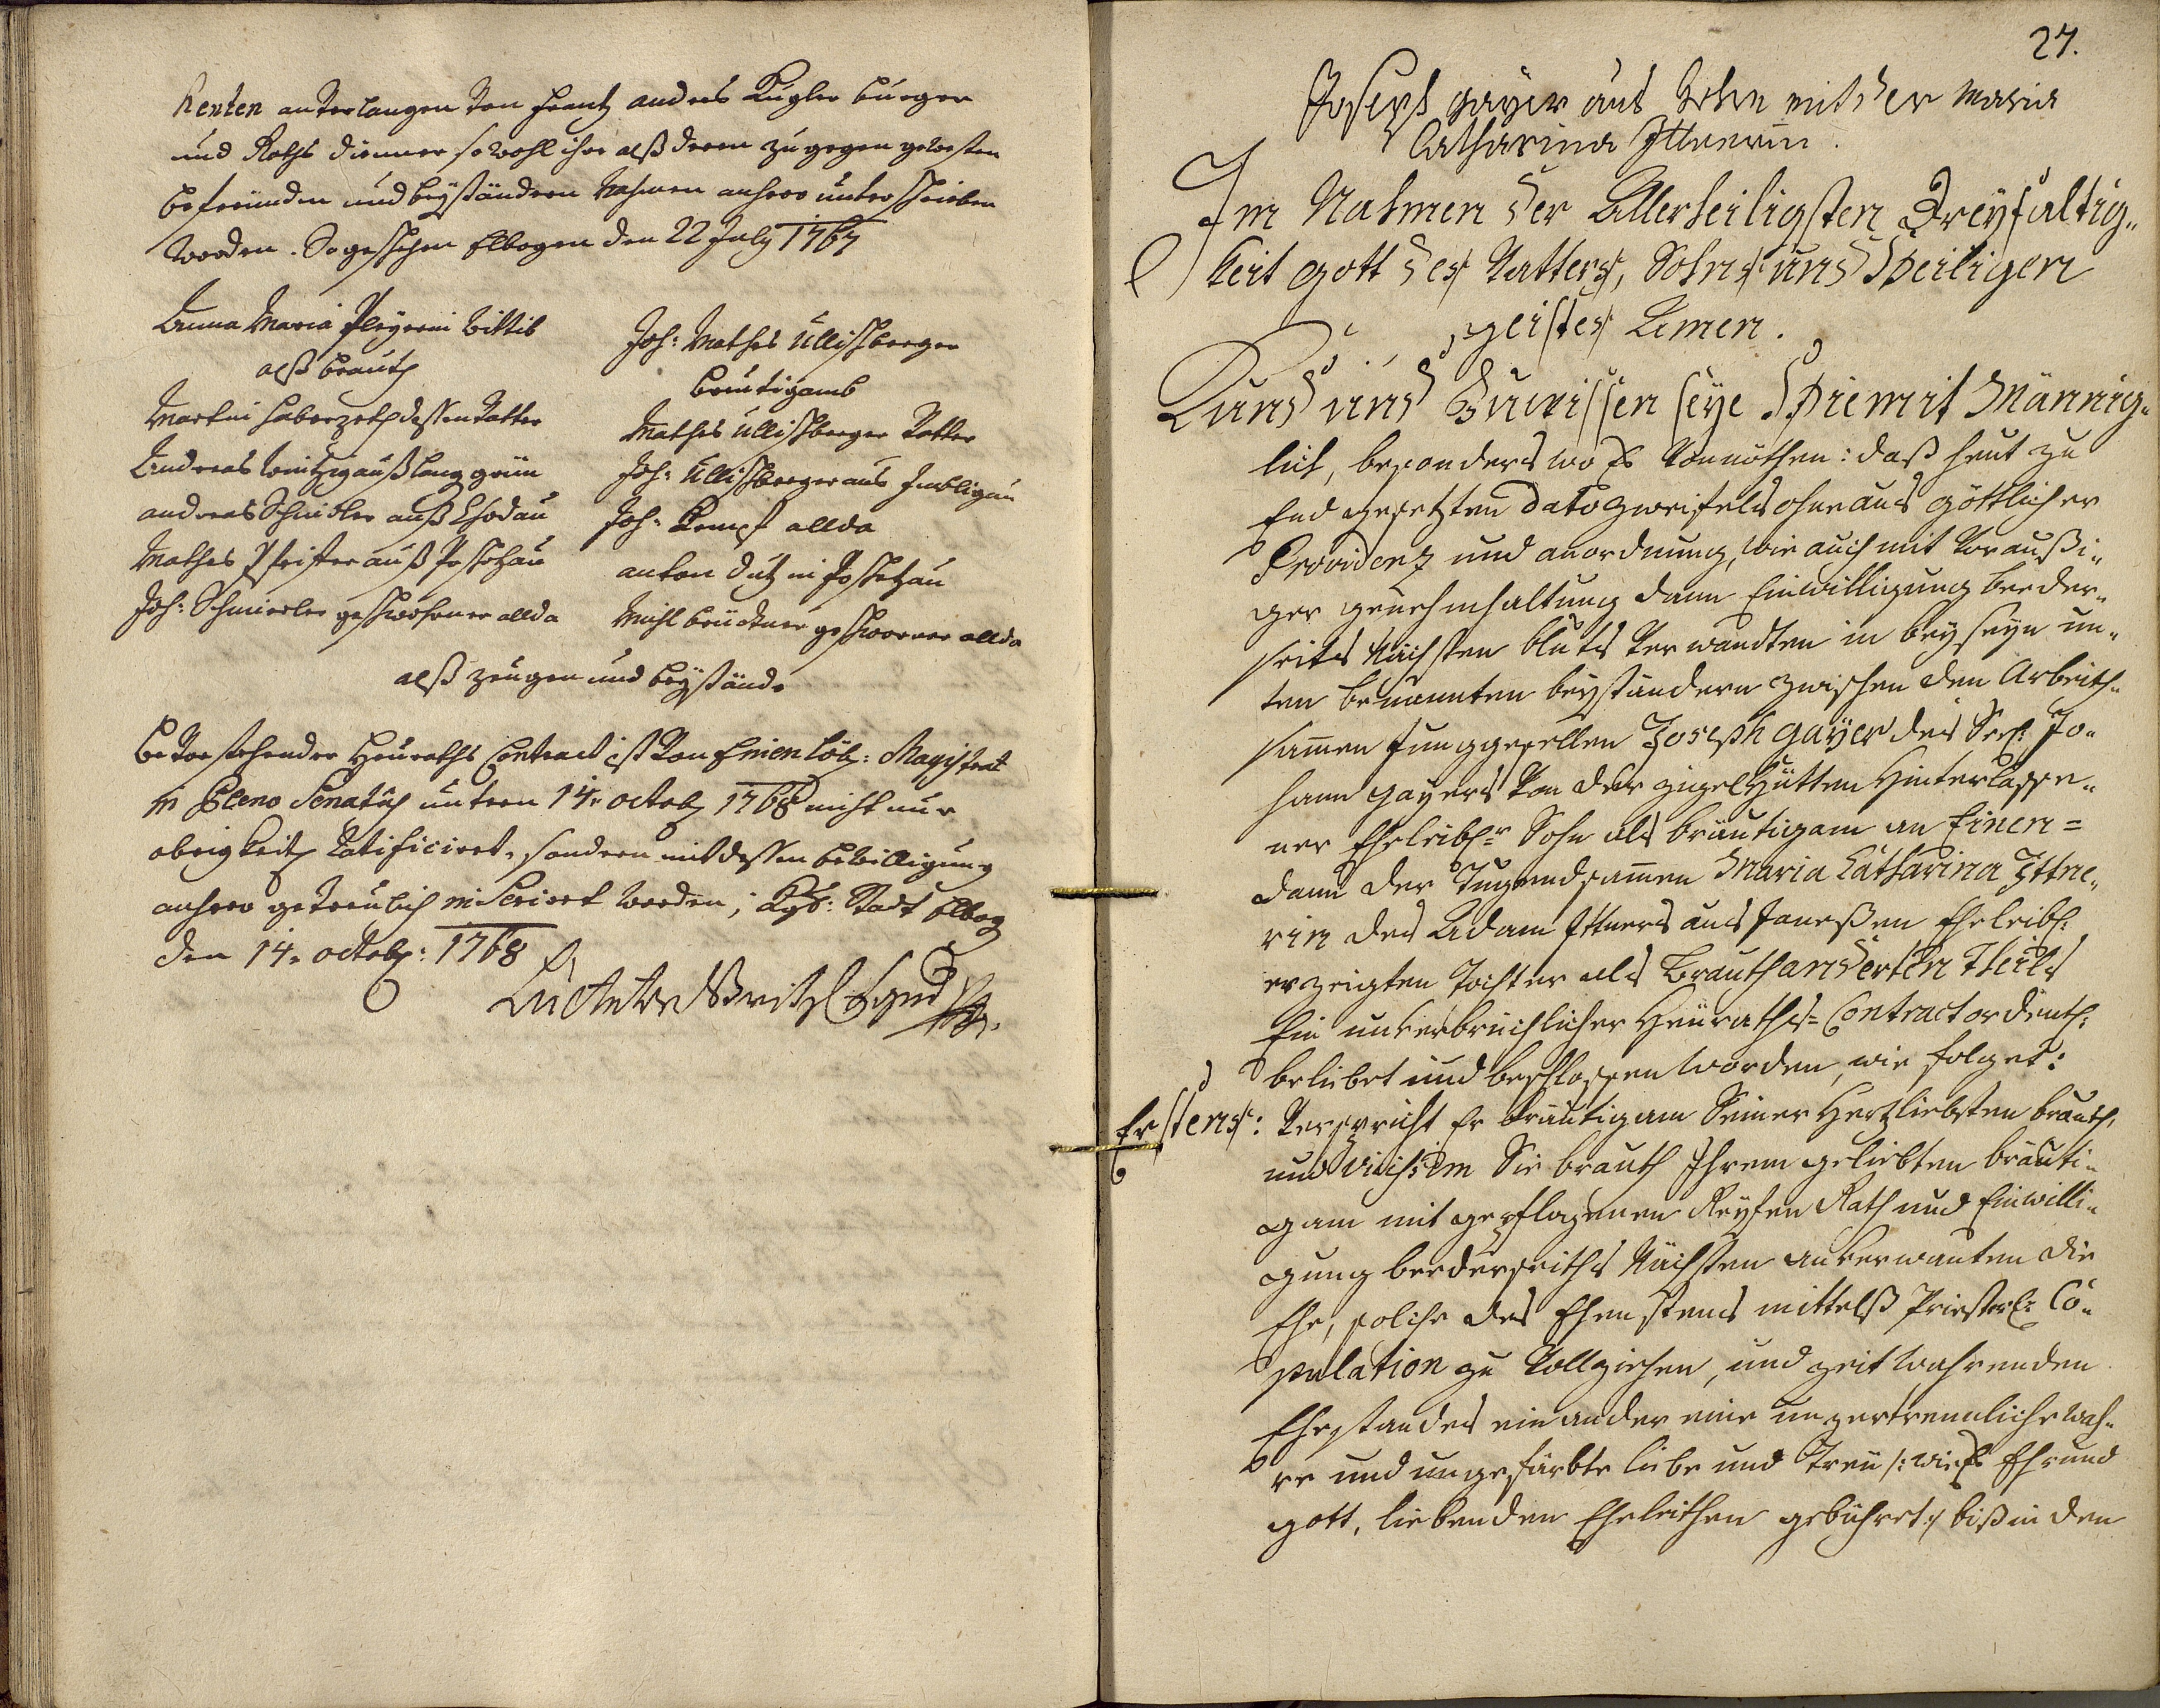 kenten anverlangen von Frantz andres Kugler burger
und Raths diener so wohl ihr alß deren zu gegen gewesten
befreünden und beyständern Nahmen anhero unterschrieben
worden. So geschehen Elbogen den 22 July 1767
Anna Maria Pleyerin Wittib
alß brauth
Martin Haberzeth dessen Vatter
Andreas auß Lang grün
andreas Schindler auß Chodau
Mathes Pfeiffer auß Poschetzau
Joh: Schmiedler geschwohrner allda
Joh: Mathes Ullischberger
breutigamb
Mathes Ullischberger Vatter
Joh: Ullischberger aus Imbligau
Joh: Kempf allda
anton Dutz in Poschetzau
Michl brückner geschworner allda
alß zeugen und beystände
bevorstehender Heuraths Contract ist von Einen löbl: Magistrat
in Pleno Senatus untern 14. octob 1768 nicht nur
obrigkeitl ratificiret, sondern mit dessen bewilligung
anhero getreulich inseriert worden; Kgl: Stadt Elbog
den 14. octob: 1768
27.
Joseph gayer aus mit der Maria
Catharina Ittnerin.
Im Nahmen der Allerheiligsten Dreyfaltig„
keit gott des Vatters, Sohns und Heiligen
geistes Amen.
Kund und Zuwissen seye Hiemit Männig„
lich, besonders wo Es Vonnöthen: daß heut zu
End gesetzten dato zweifels ohne aus göttlicher
Providenz und anordnung, wie auch mit Vor außi„
ger genehmhaltung dann Einwilligung beeder„
seits Nächsten bluts Verwandten in beyseyn un„
ten benannten beyständern zwischen den Arbeith„
samen Junggesellen Joseph gayer des Seel: Jo„
hann gayers Von der ziegelhütten Hinterlasse„
ner Eheleibl: Sohn als bräutigam an Einen=
dann der Tugendsamen Maria Catharina Ittne„
rin des Adam Ittners aus Janeßen Eheleibl:
erzeigten Tochter als Brauth anderten Theils
Ein unverbrüchlicher Heuraths=Contract ordentl:
beliebet und beschlossen worden, wie folget:
Erstens: Verspricht Er bräutigam Seiner Hertzliebsten brauth,
und vicissim Sie brauth Ihrem geliebten bräuti„
gam mit gepflogenen Reyfen Rath und Einwilli„
gung beederseiths Nächsten anverwanten die
Ehe, solche des Ehenstens mittelß Priesterl: Co„
pulation zu Vollziehen, und zeit wehrenden
Ehestandes ein ander eine unzertrennliche wah„
re und ungefärbte liebe und Treu /: wie Es Ehr und
gott, liebenden Eheleithen gebühret:/ biß in den